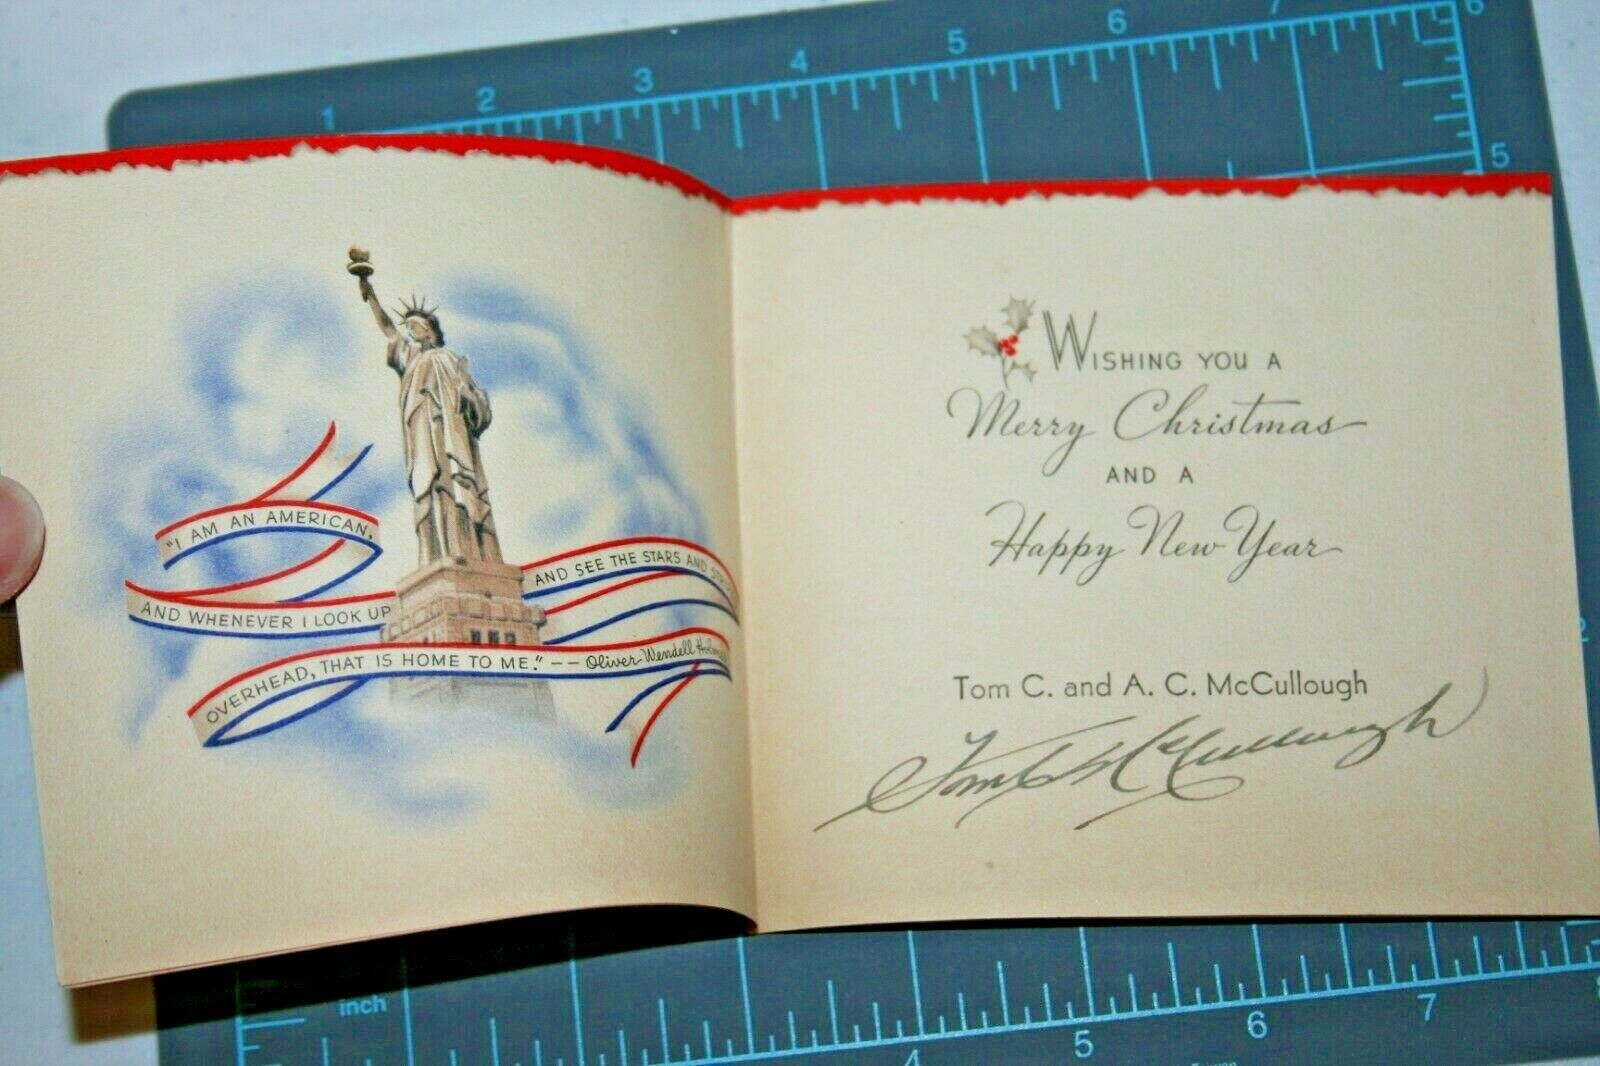 1 2 3 4 5 6 7 6
5
"I AM AN AMERICAN,
AND WHENEVER I LOOK UP
AND SEE THE STARS AND
OVERHEAD, THAT IS HOME TO ME." -- Oliver Wendell
WISHING YOU A
Merry Christmas
AND A
Happy New Year
Tom C. and A. C. McCullough
Tom C. McCullough
2
inch
4 5 6 7